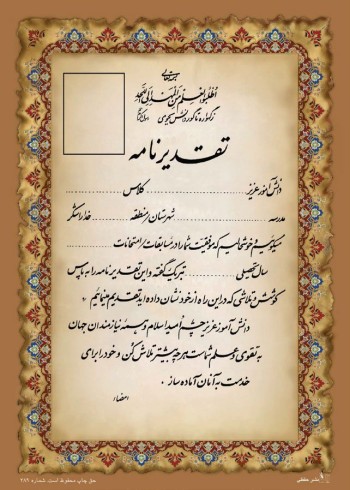 بسمه تعالی
اطلبوا العلم من المهد الی اللحد
ز گهواره تا گور دانش بجوی
تقدیرنامه
دانش آموز عزیز ........ کلاس ........
مدرسه ........ شهرستان/منطقه ........ خدا را شکر
میگوئیم خوشحالیم که موفقیت شما را در مسابقات/امتحانات
سال تحصیلی ........ تبریک گفته و این تقدیرنامه را به پاس
کوشش و تلاشی که در این راه از خود نشان داده اید تقدیم مینمائیم
دانش آموز عزیز چشم امید اسلام و همه نیازمندان جهان
به تقوی و علم شماست هر چه بیشتر تلاش کن و خود را برای
خدمت به آنان آماده ساز .
امضاء
نشر حافظی
حق چاپ محفوظ است. شماره ۲۸۹